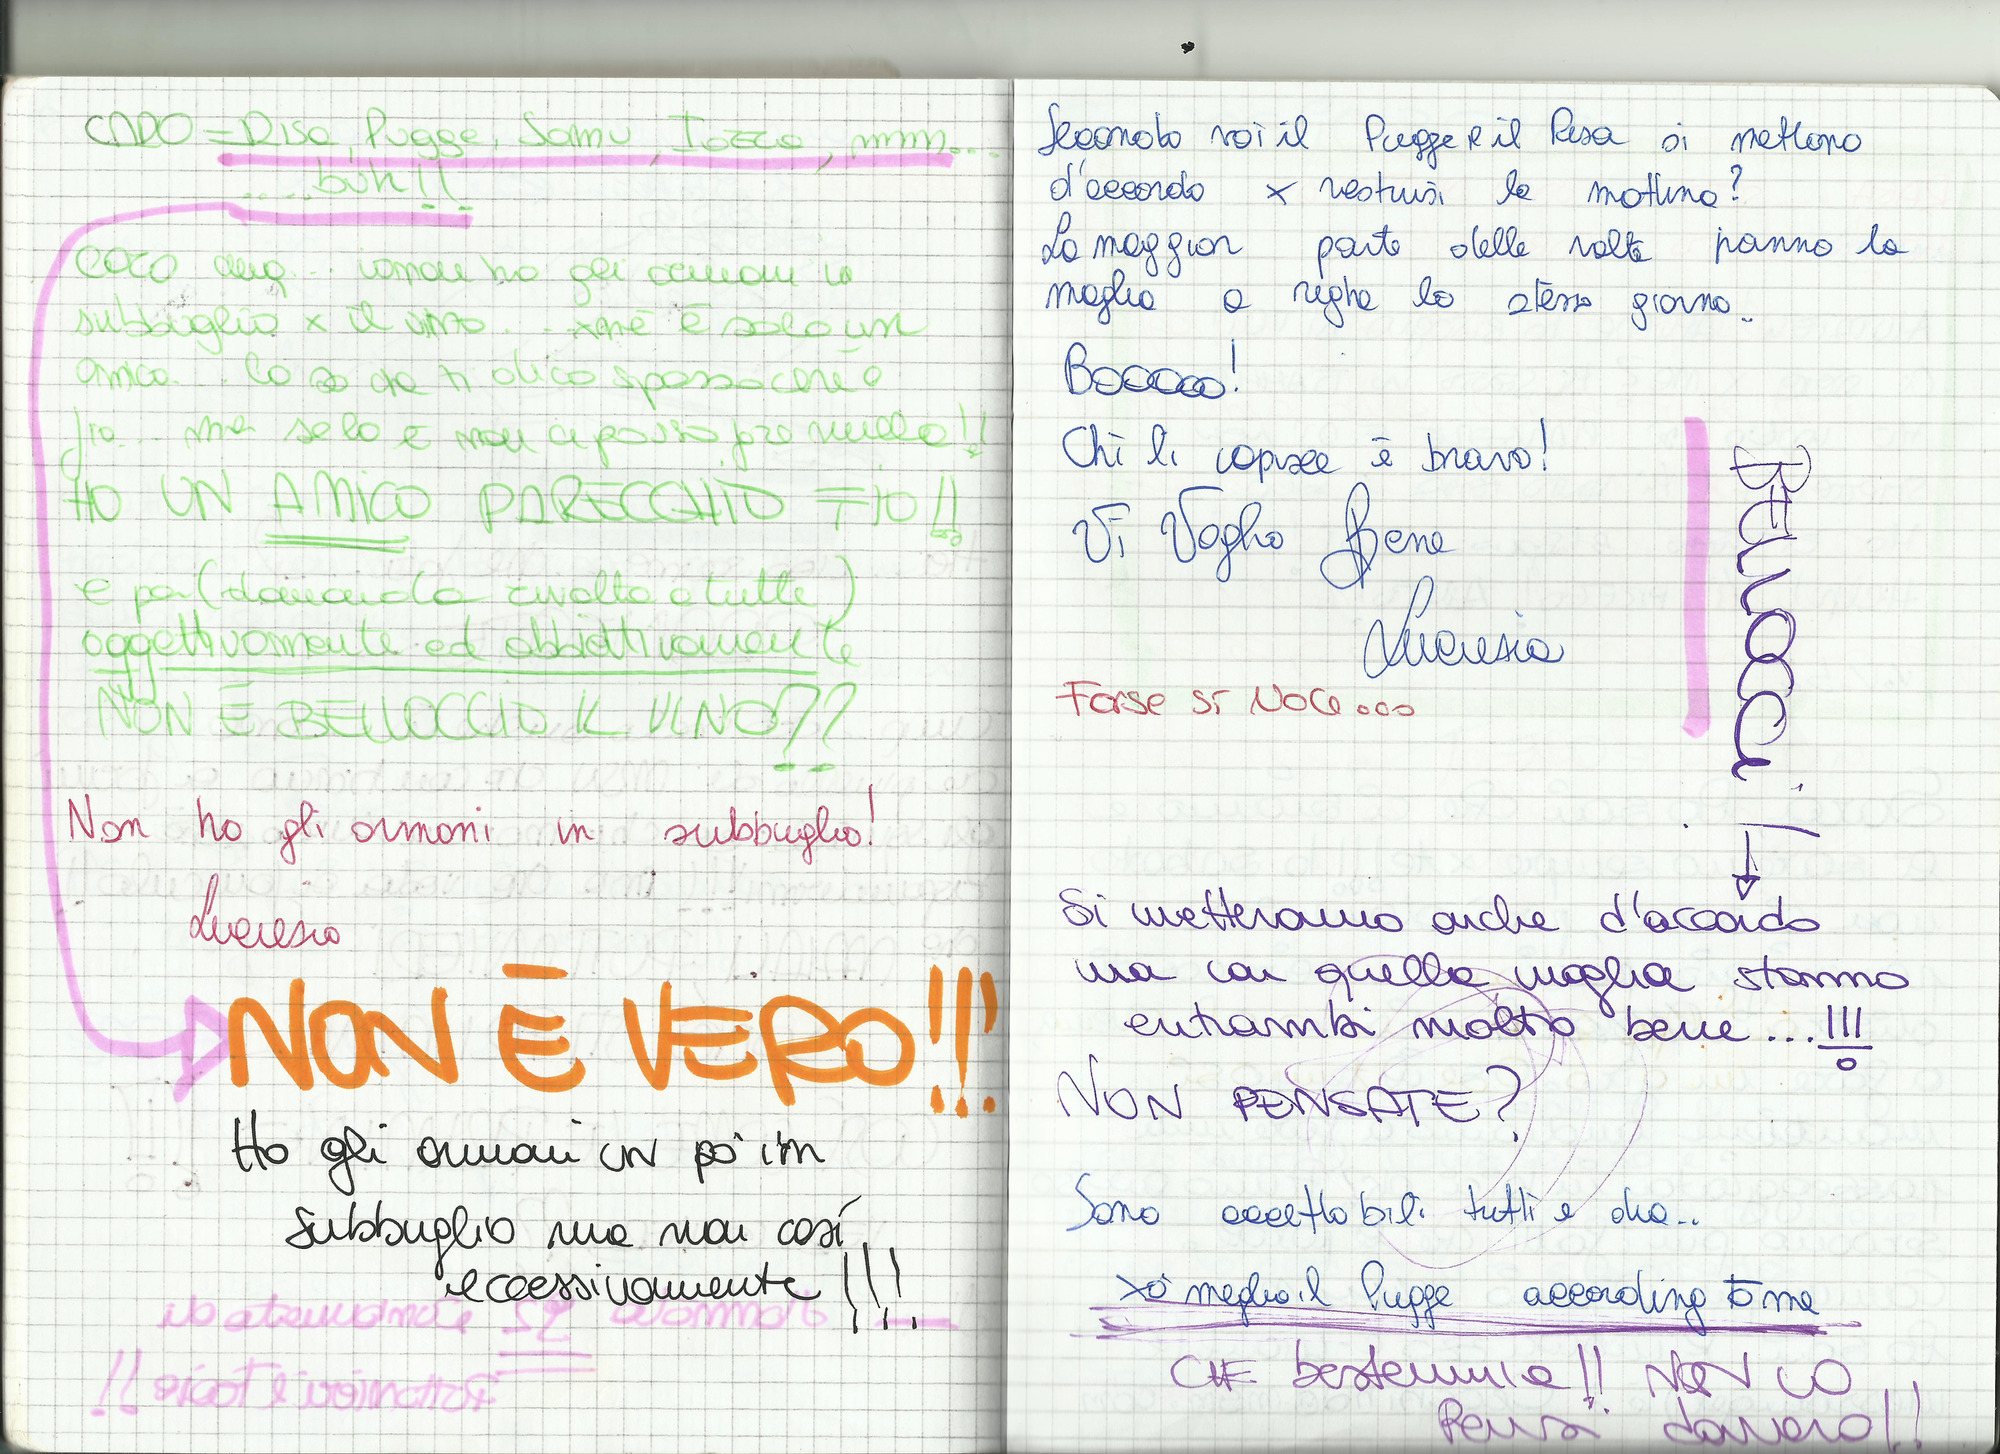 CADO = Risa, Pugge, Samu, Tozzo, mmm...
.....boh!!
COCO
subbuglio x il vino... xchè è solo un
amico... lo so che ti dico spesso che è
fio... ma solo e non ci posso fare nulla!!
HO UN AMICO PARECCHIO FIO!!
e poi (domanda rivolta a tutte)
oggettivamente ed obbiettivamente
NON È BELLOCCIO IL VINO??
Non ho gli ormoni in subbuglio!
Lucrezia
NON È VERO!!!
Ho gli ormoni un pò in
subbuglio ma non così
eccessivamente!!!
Secondo voi il Pugge e il Risa si mettono
d'accordo x vestirsi la mattina?
La maggior parte delle volte hanno la
maglia a righe lo stesso giorno..
Booooo!
Chi li capisce è bravo!
Vi Voglio Bene
Lucrezia
Forse si Noce...
BELLOCCI!
Si metteranno anche d'accordo
ma con quella maglia stanno
entrambi molto bene...!!!
NON PENSATE?
Sono accettabili tutti e due..
xò meglio il Pugge according to me
CHE bestemmia!! NON LO
Pensi davvero!!